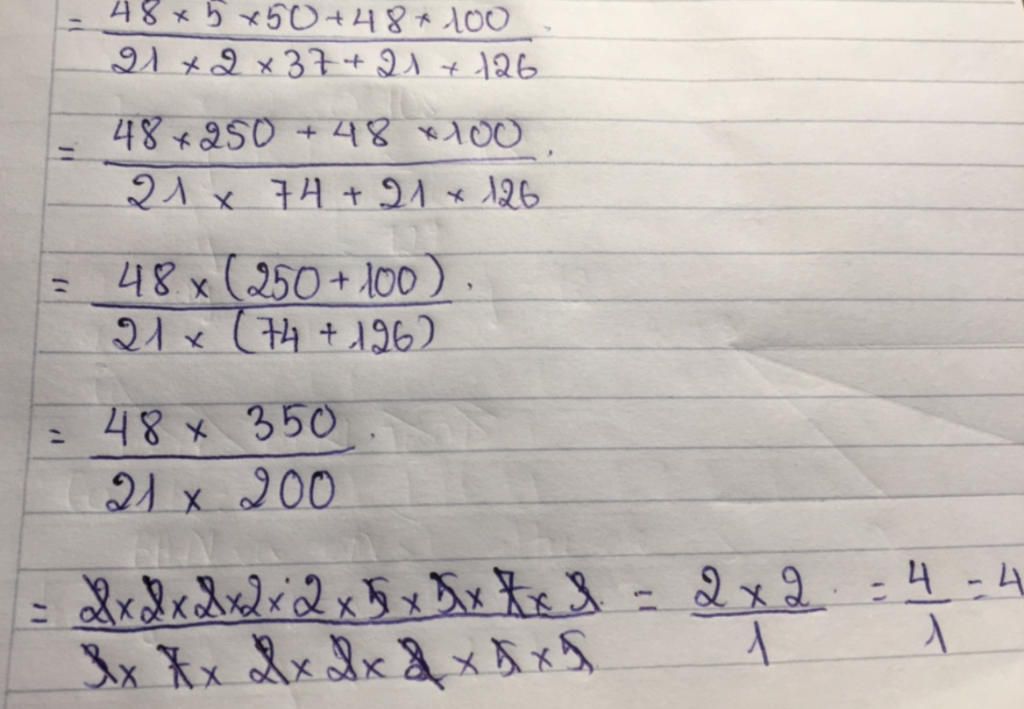 = 48 × 5 × 50 + 48 × 100
21 × 2 × 37 + 21 × 126
= 48 × 250 + 48 × 100
21 × 74 + 21 × 126
= 48 × (250 + 100)
21 × (74 + 126)
= 48 × 350
21 × 200
= 2 × 2 × 2 × 2 × 2 × 5 × 5 × 7 × 3 = 2 × 2 = 4 = 4
3 × 7 × 2 × 2 × 2 × 5 × 5 1 1